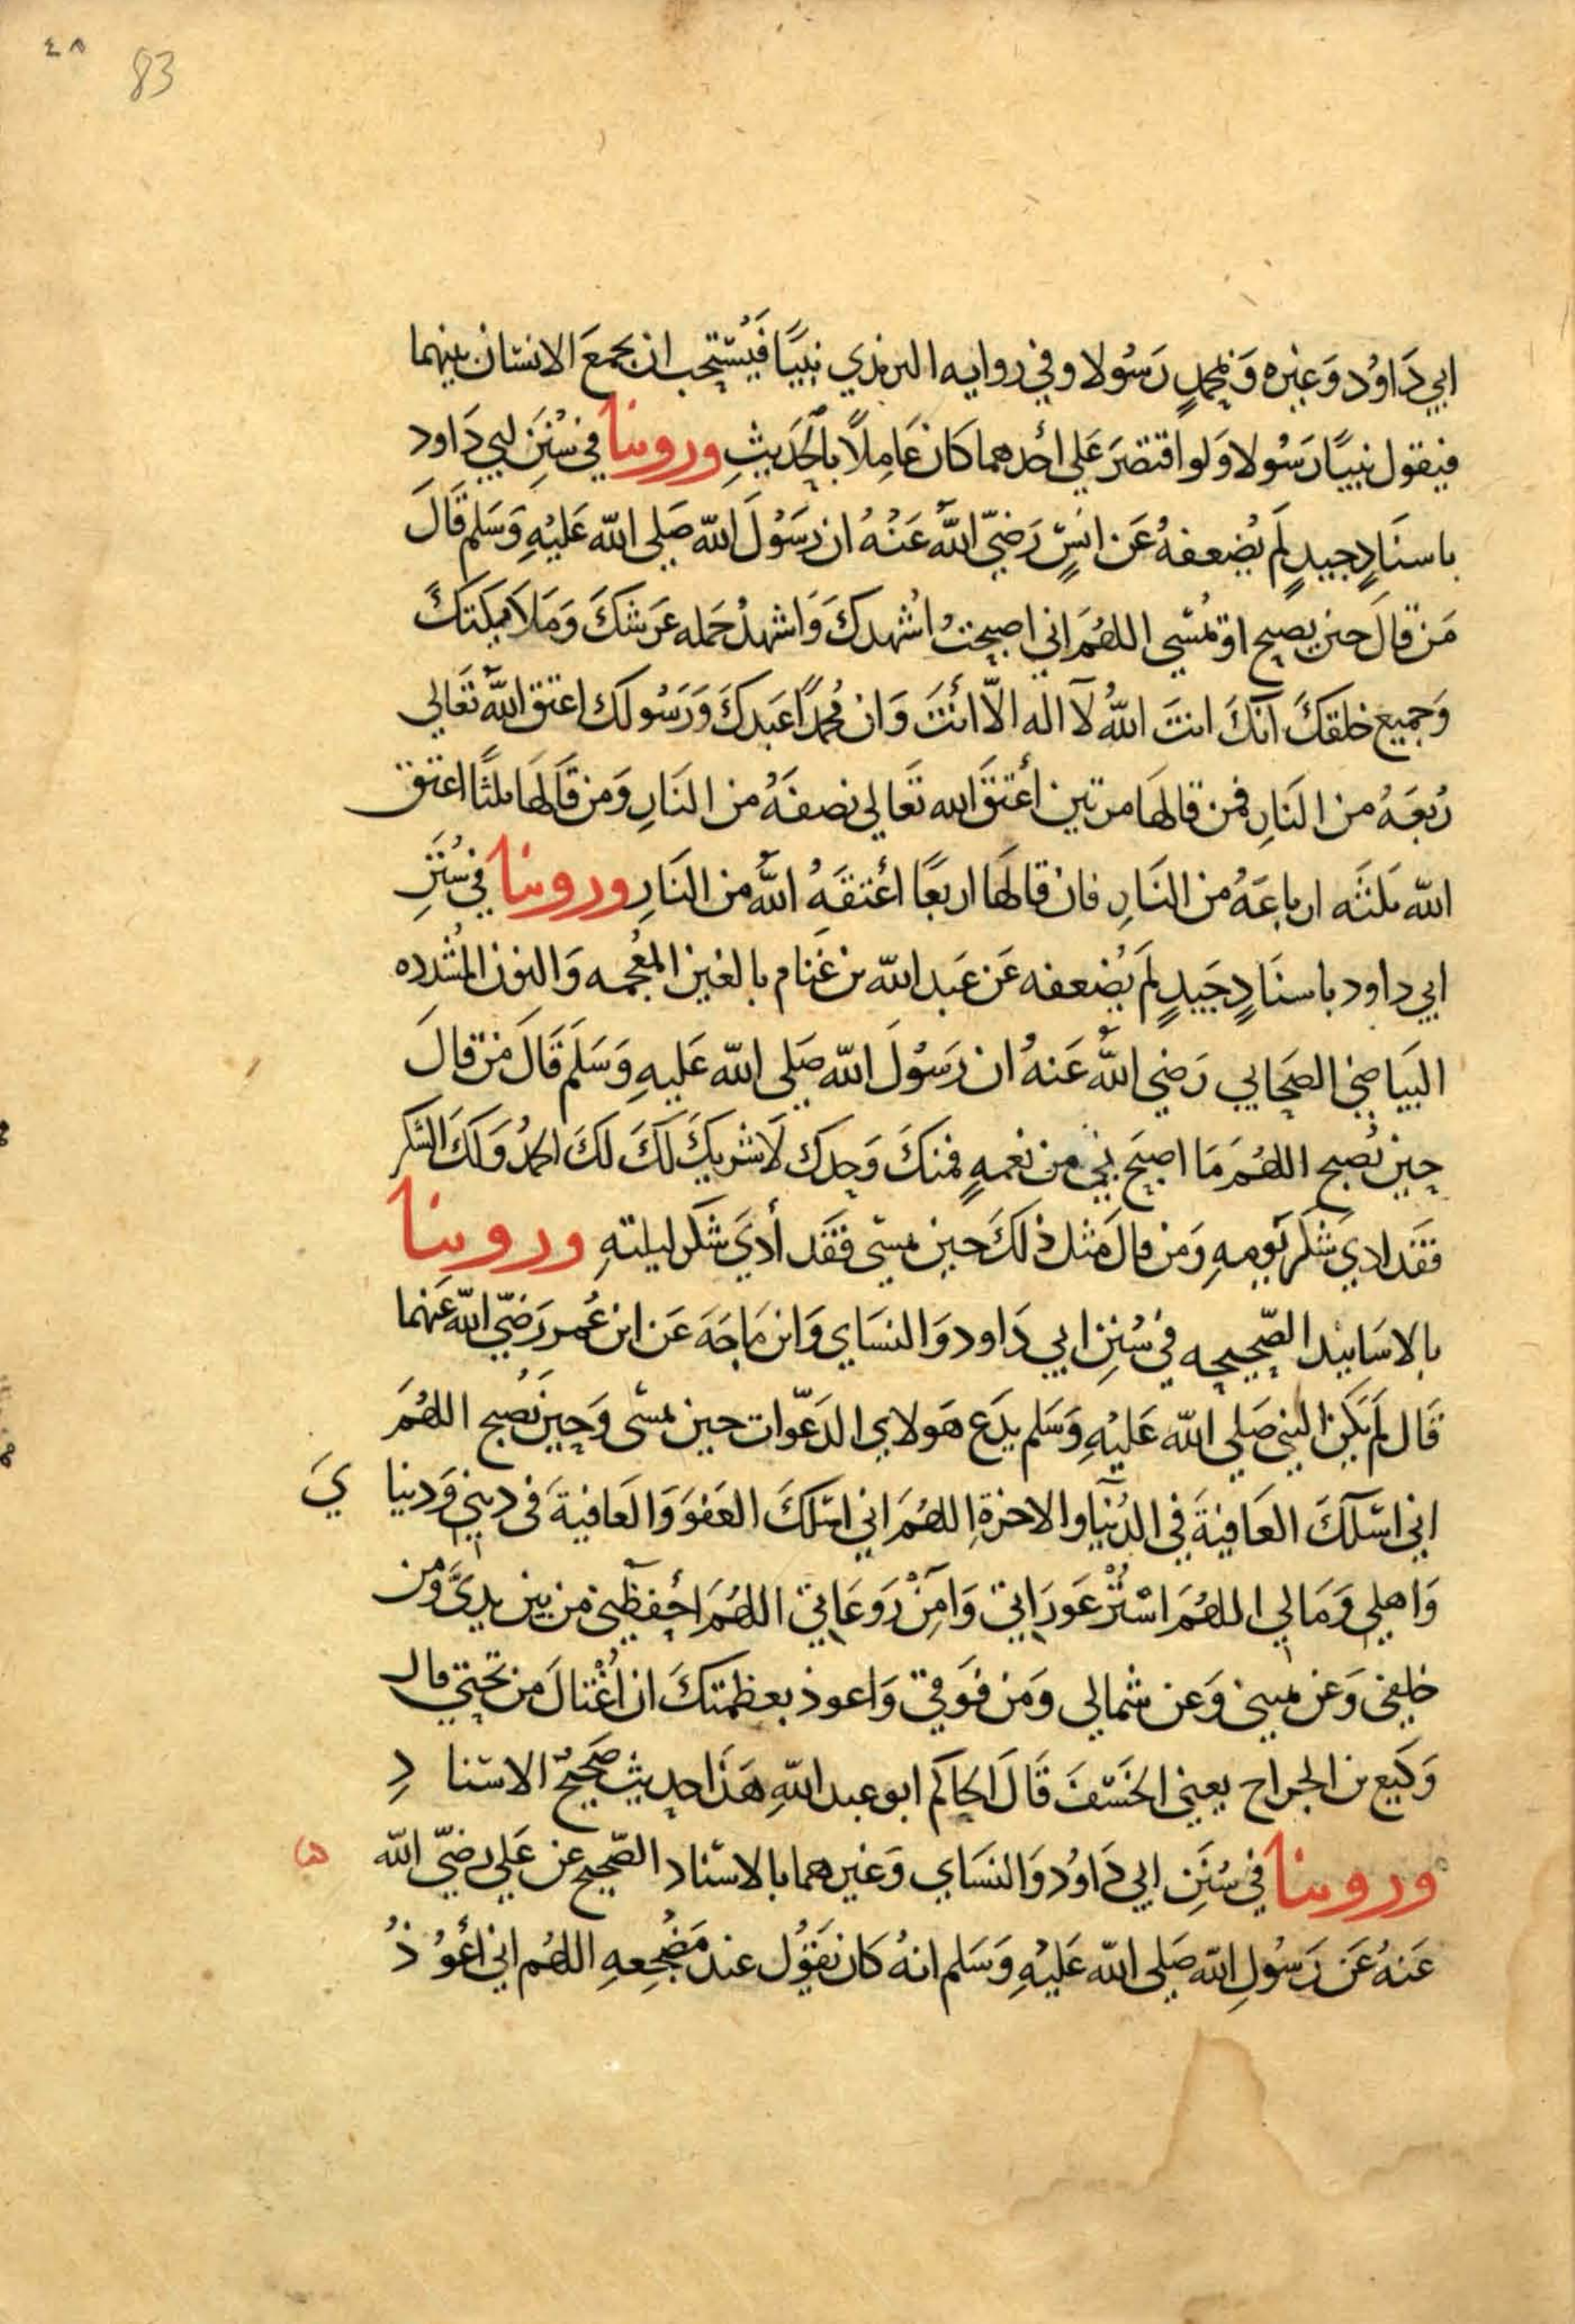 ٤٨ 83
ابي دَاوُد وَغيره وَبمحمدٍ رَسُولا وفي روايه الترمذي نبيًا فَيُستحب ان يجمعَ الانسَان بينهما
فيقول نبيًا رَسُولا وَلو اقتصَرَ عَلي أحدهما كان عَامِلًا بالحَديثِ وروينا في سُنَنِ ابي دَاود
باسنَادٍ جيدٍ لَم يُضعفهُ عَن انَسٍ رَضيَ اللهُ عَنْهُ ان رَسُولَ الله صَلي الله عَليْهِ وَسَلم قَالَ
مَن قالَ حين يصبح او يُمسِي اللهُمَ اني اصبحتُ اُشهدكَ وَاشهدُ حَمله عَرشكَ وَمَلَايكتكَ
وَجميع خلقكَ انَّكَ انتَ اللهُ لآ اله الّا انْتَ وَان محمدًا عَبدكَ وَرَسُولك اعتق اللهُ تَعَالي
رُبعَهُ من النَارِ فمن قالهَا مرتين أعْتقَ الله تَعَالي نصفَهُ من النَارِ وَمن قَالهَا ثلثًا اعتق
الله ثلثَه ارباعَهُ من النَارِ فان قالهَا اربعًا اعْتقَهُ اللهُ من النَارِ وروينا في سُنَنِ
ابي داود باسنَادٍ جَيدٍ لَم يُضعفه عَن عَبد الله بن غَنام بالغين المُعجمه وَالنون المُشدده
البَياضي الصَحَابي رَضي اللهُ عَنهُ ان رَسُولَ الله صَلي الله عَليهِ وَسَلمَ قَالَ مَن قالَ
حِين يُصبح اللهُمَ مَا اصبَح بي من نعمهٍ فمنكَ وَحدكَ لَا شريكَ لَكَ لكَ الحمدُ وَلكَ الشكر
فقَد ادي شكر يَومهِ وَمن قالَ مثل ذلكَ حين يمسي فقَد أديَ شكر ليلتهِ وروينا
بالاسَانيد الصّحيحه في سُنن ابي دَاود وَالنسَاي وَابن مَاجَهَ عَن ابن عُمر رَضيَ الله عَنهما
قَال لَم يَكن النبي صَلي الله عَليْهِ وَسَلم يدَع هَولاي الدعَوات حين يمسي وَحِين يُصبح اللهُمَ
اني اسَلكَ العَافيةَ في الدُنيَا والاخرة اللهُمَ اني اسَلكَ العَفوَ وَالعَافيةَ في ديني وَدنيا يَ
وَاهلي وَمَالي اللهُمَ اسْتُرْ عَورَاتي وَآمِنْ رَوعَاتي اللهُمَ احْفظْني من بين يديَّ ومن
خلفي وَعن يميني وَعن شمالي وَمن فوقي وَاعوذ بعظمتكَ ان اُغْتالَ من تحتي قال
وَكيع بن الجراح يعني الخَسْفَ قَالَ الحاكم ابو عبد اللهِ هَذَا حديث صَحيحُ الاسنا دِ
وروينا في سُنَنِ ابي دَاوُد وَالنسَاي وَغيرهما بالاسْنَاد الصّحيح عن عَلي رضيَ الله
عَنهُ عَن رَسُولِ الله صَلي الله عَليْهِ وَسَلم انهُ كان يَقوُل عند مَضْجعهِ اللهُم اني أعُوذُ